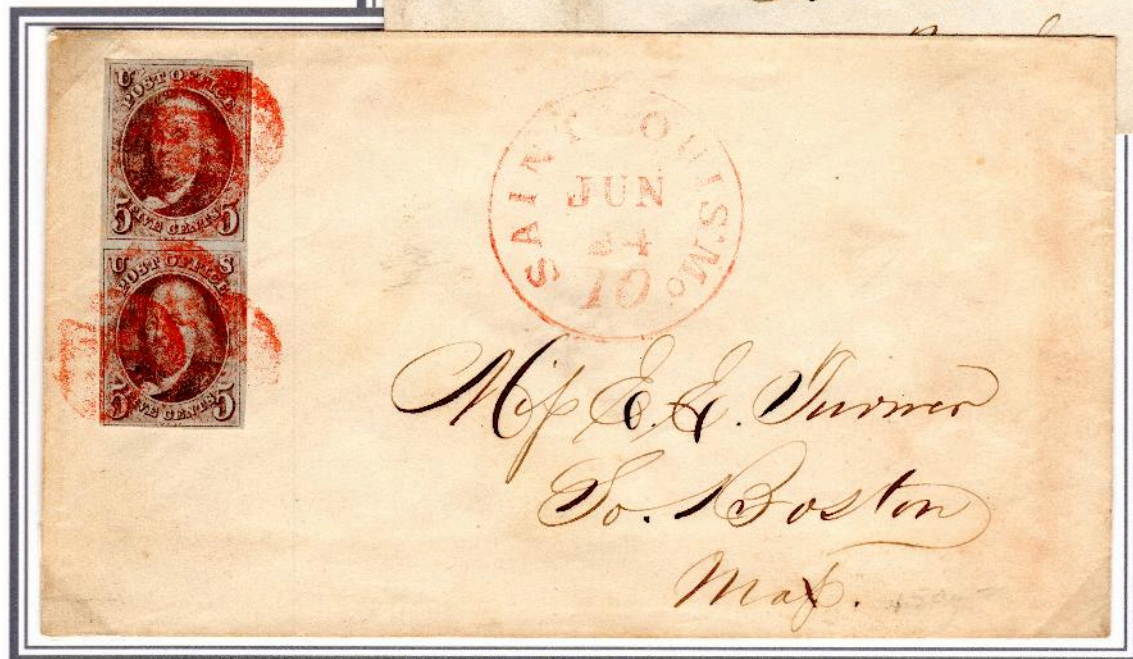 U
POST OFFICE
5 FIVE CENTS 5
U S
POST OFFICE
5 FIVE CENTS 5
SAINT LOUIS. Mo
JUN
24
10
Miſs E. E. Turner
So. Boston
Maſs.